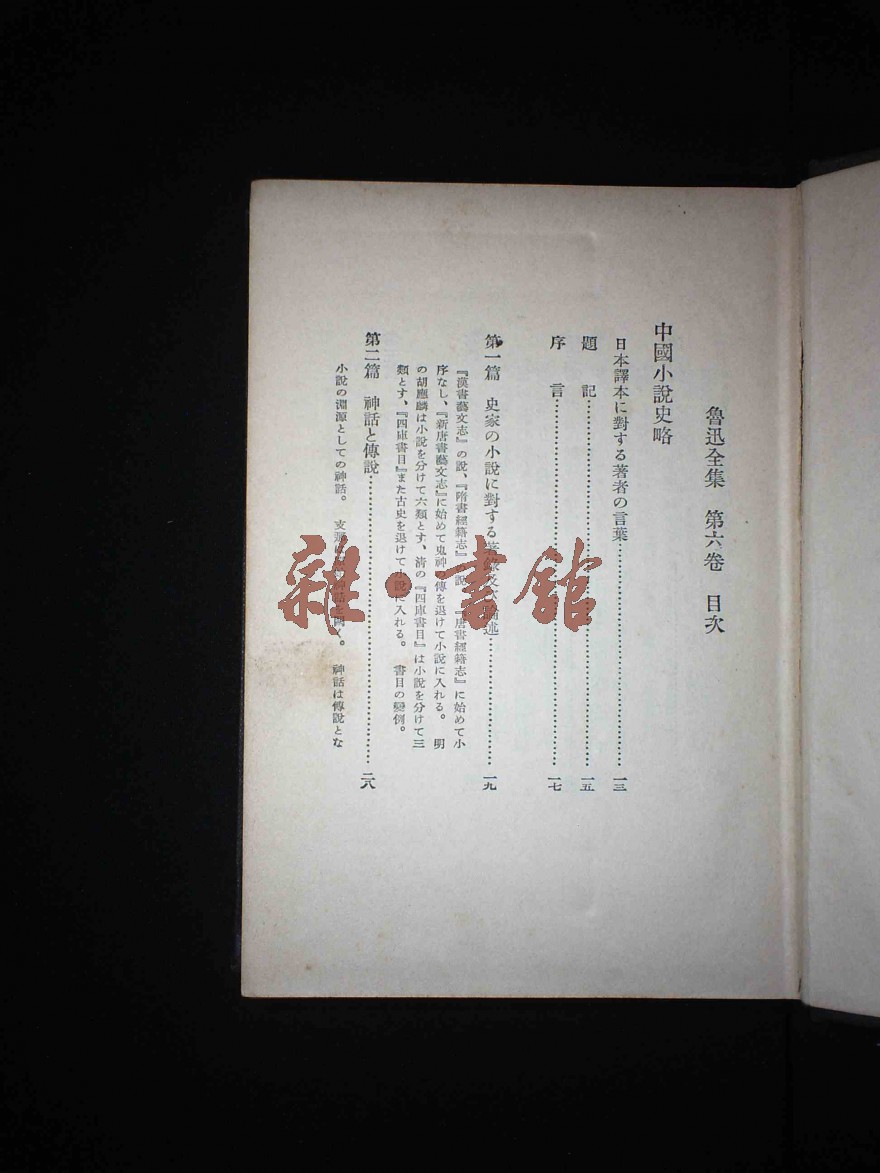 魯迅全集 第六卷 目次
中國小說史略
日本譯本に對する著者の言葉……一三
題記……一五
序言……一七
第一篇 史家の小說に對する著錄及び論述……一九
『漢書藝文志』の說、『隋書經籍志』說、『唐書經籍志』に始めて小
序なし、『新唐書藝文志』に始めて鬼神の傳を退けて小說に入れる。 明
の胡應麟は小說を分けて六類とす、清の『四庫書目』は小說を分けて三
類とす、『四庫書目』また古史を退けて小說に入れる。 書目の變例。
第二篇 神話と傳說……二八
小說の淵源としての神話。 支那は 神話を く。 神話は傳說とな
雜·書館